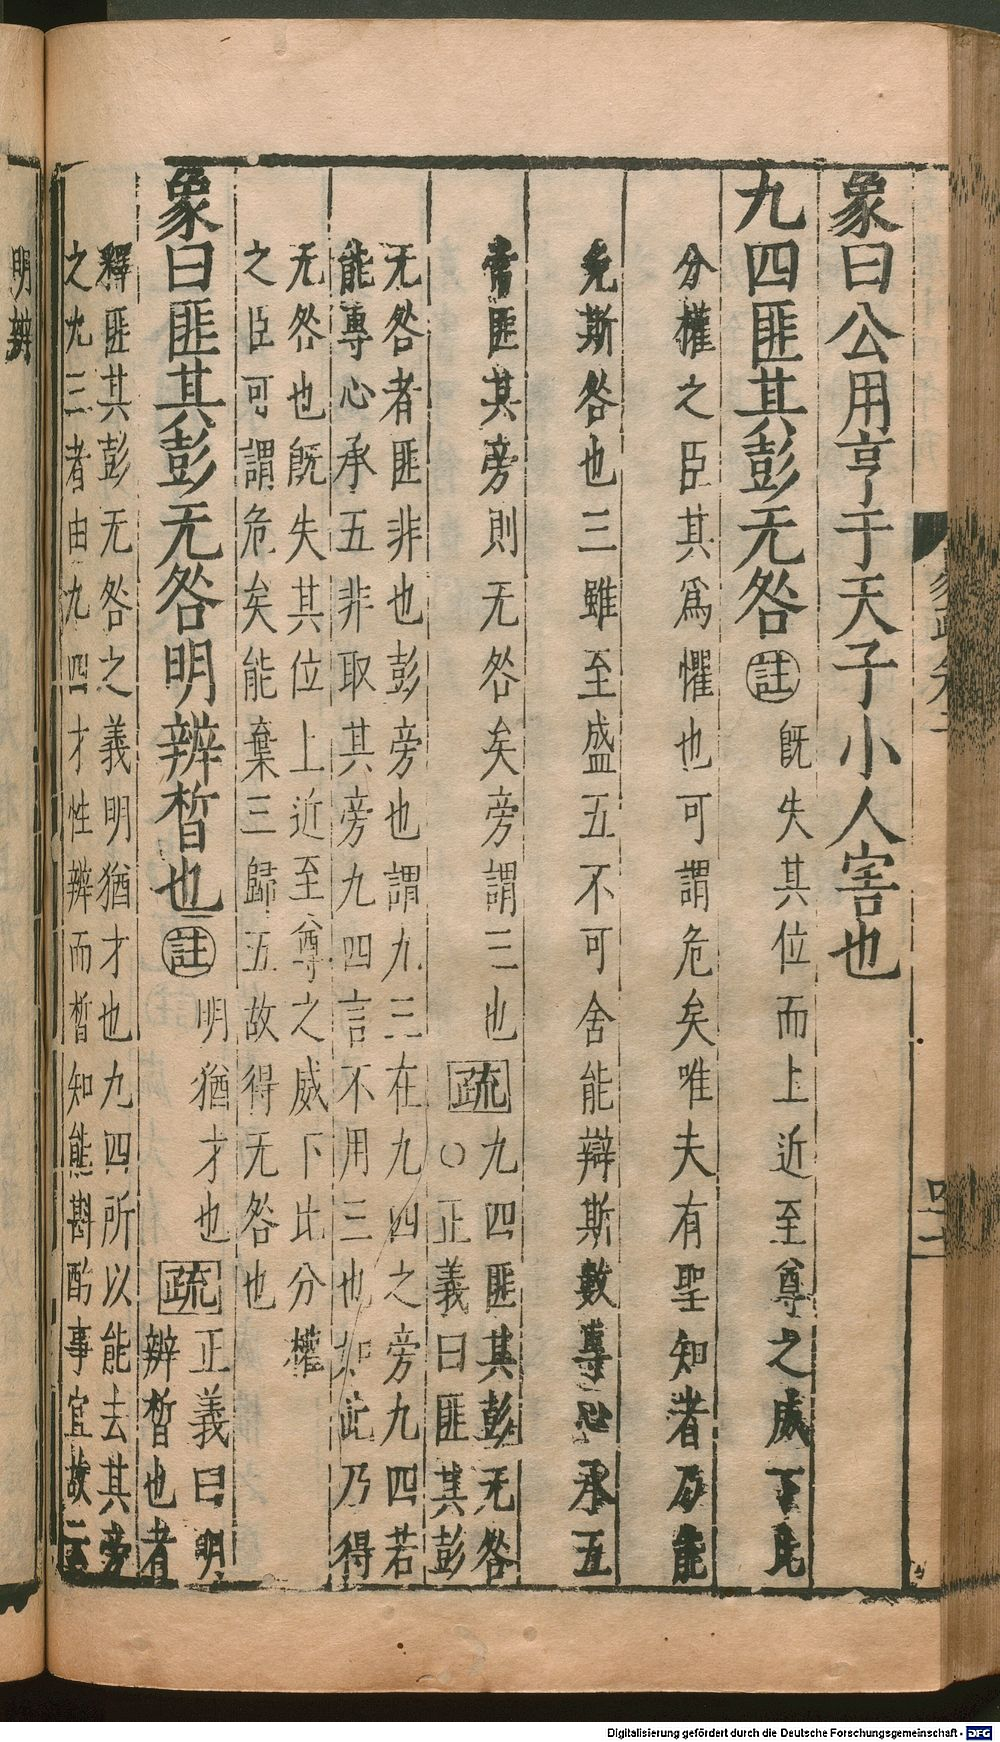 象曰公用亨于天子小人害也
九四匪其彭无咎註既失其位而上近至尊之威下比
分權之臣其爲懼也可謂危矣唯夫有聖知者乃能
免斯咎也三雖至盛五不可舍能辯斯數專心承五
常匪其旁則无咎矣旁謂三也疏九四匪其彭无咎
○正義曰匪其彭
无咎者匪非也彭旁也謂九三在九四之旁九四若
能專心承五非取其旁九四言不用三也如此乃得
无咎也既失其位上近至尊之威下比分權
之臣可謂危矣能棄三歸五故得无咎也
象曰匪其彭无咎明辨晢也註明猶才也疏正義曰明
辨晢也者
釋匪其彭无咎之義明猶才也九四所以能去其旁
之九三者由九四才性辨而晢知能斟酌事宜故云
明辨
Digitalisierung gefördert durch die Deutsche Forschungsgemeinschaft - DFG